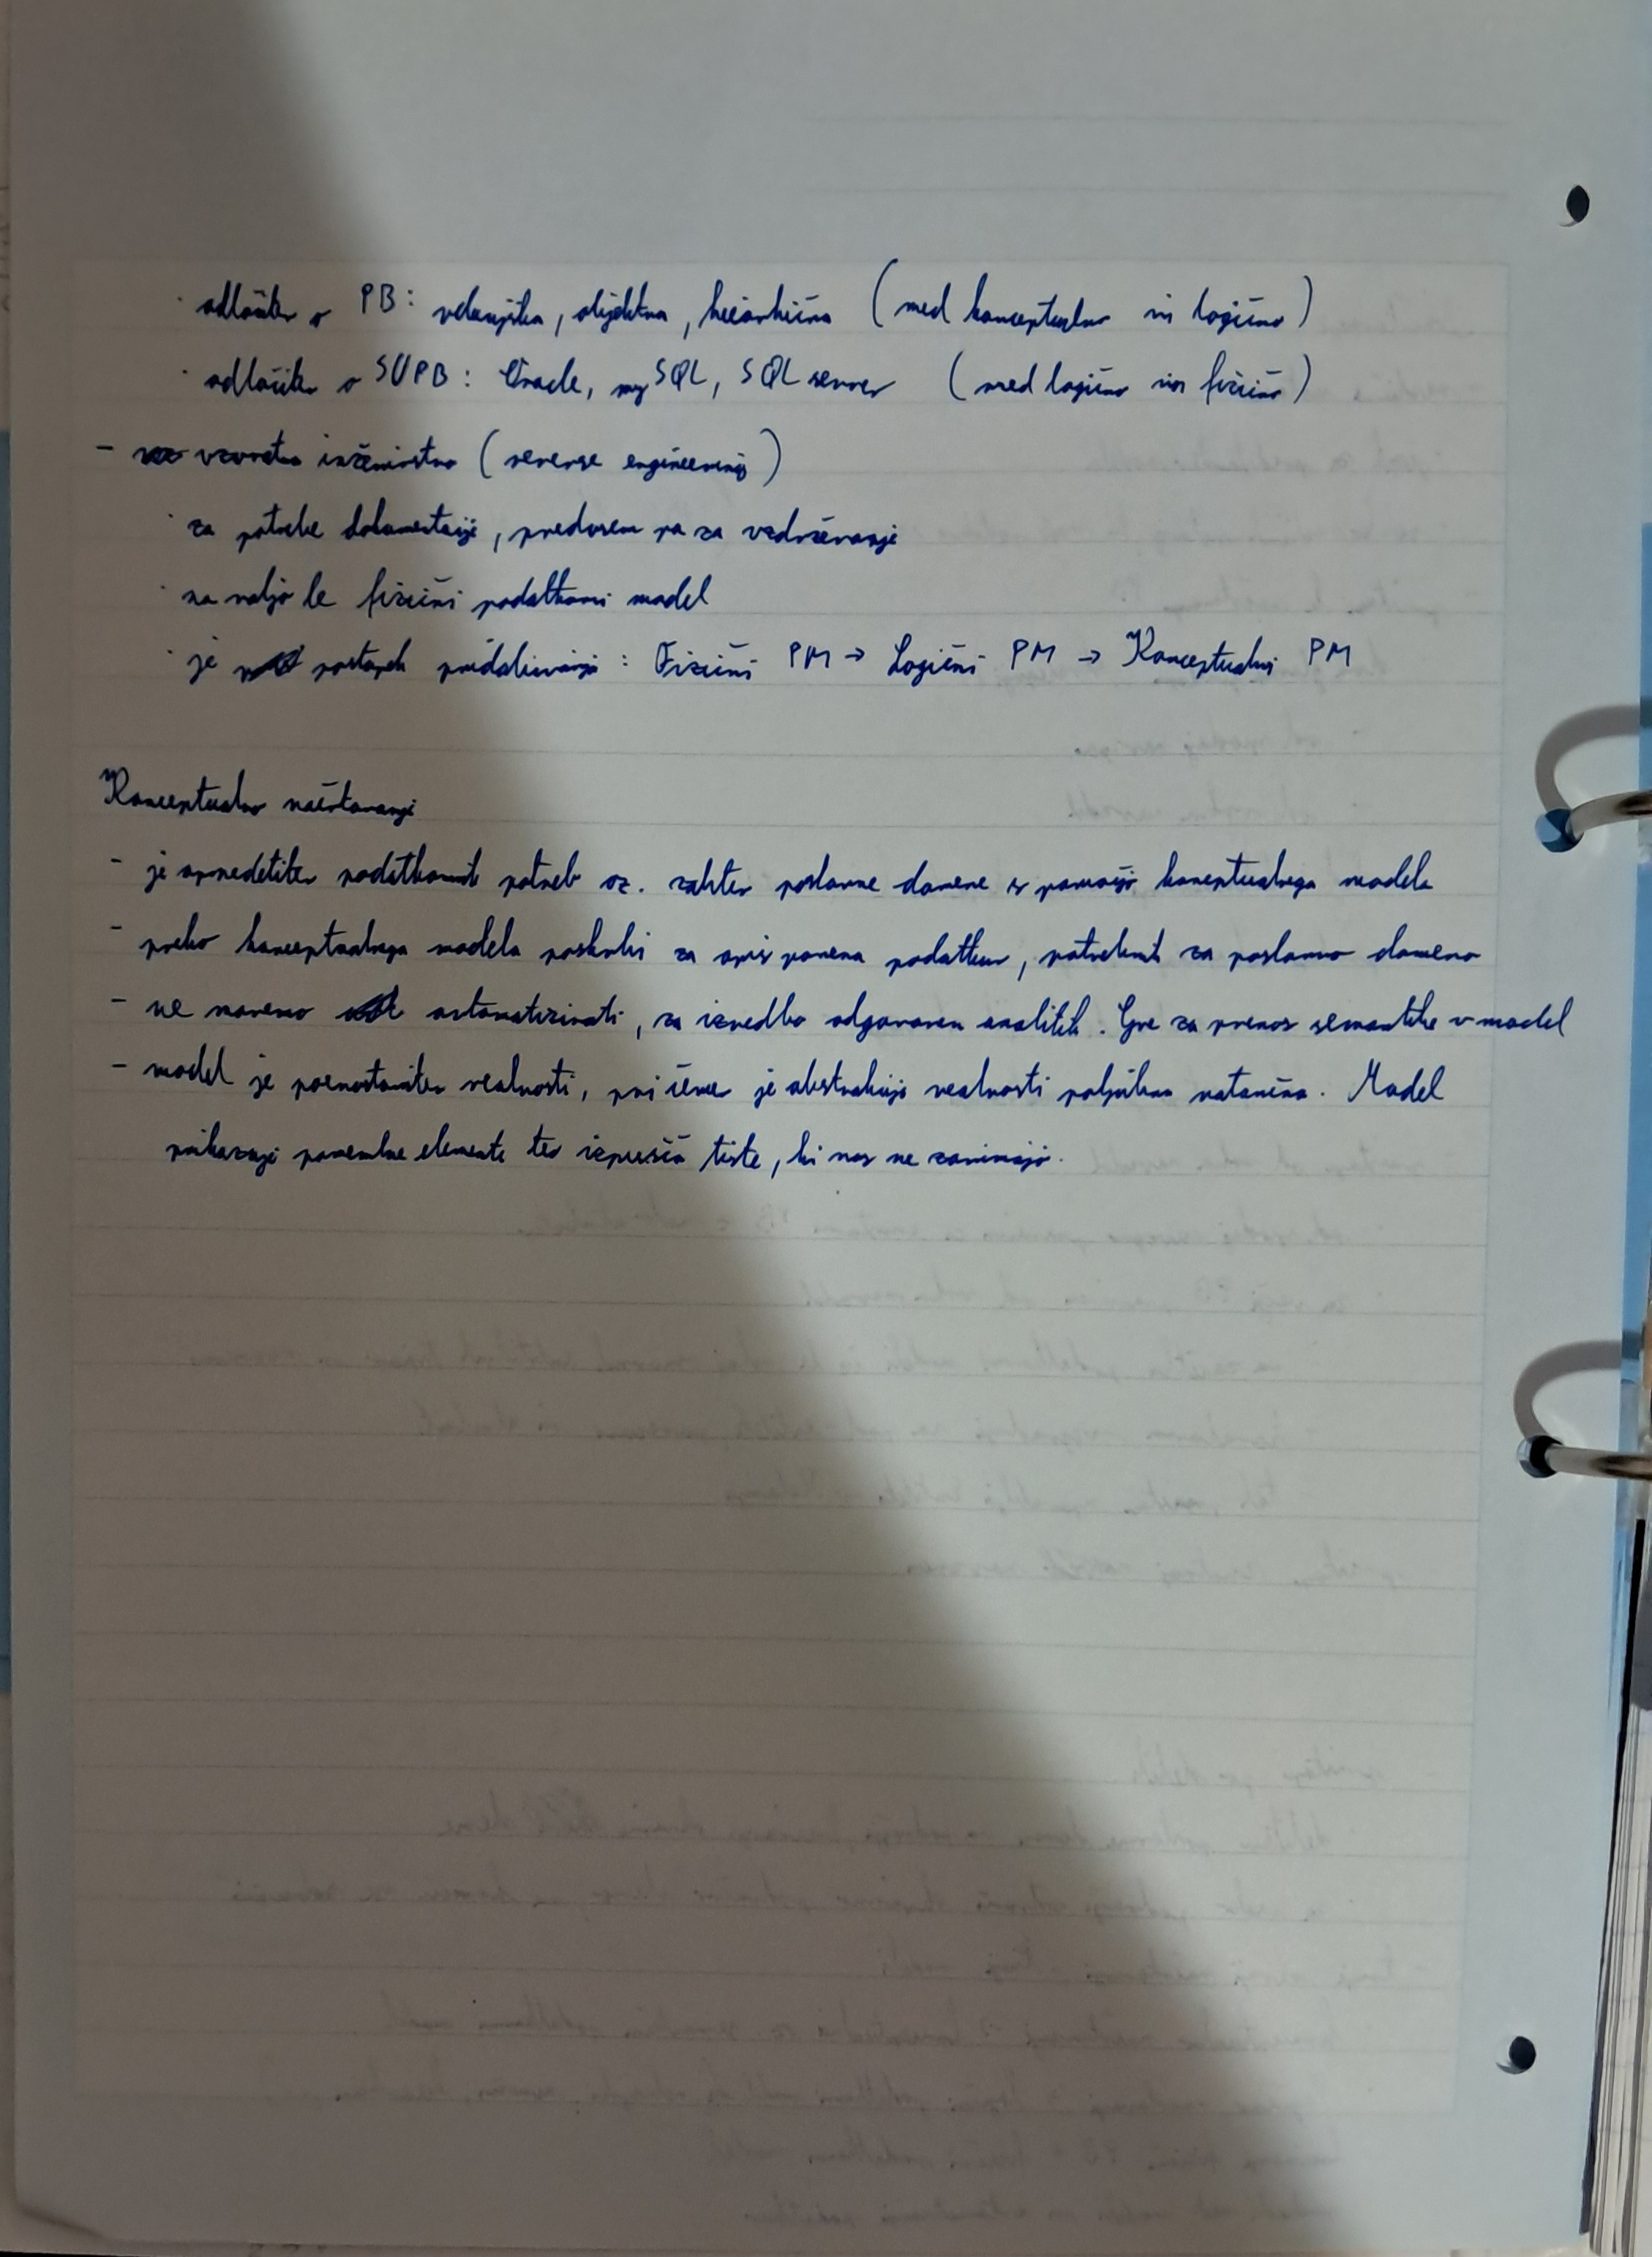 · odločitev o PB: relacijska, objektna, hierarhična (med konceptualno in logično)
· odločitev o SUPB: Oracle, mySQL, SQL server (med logično in fizično)
- vzvratno inženirstvo (reverse engineering)
· za potrebe dokumentacije, predvsem pa za vzdrževanje
· na voljo le fizični podatkovni model
· je postopek pridobivanja: Fizični PM → Logični PM → Konceptualni PM
Konceptualno načrtovanje
- je opredelitev podatkovnih potreb oz. zahtev poslovne domene s pomočjo konceptualnega modela
- preko konceptualnega modela poskrbi za opis pomena podatkov, potrebnih za poslovno domeno
- ne moremo avtomatizirati, za izvedbo odgovoren analitik. Gre za prenos semantike v model
- model je poenostavitev realnosti, pri čemer je abstrakcija realnosti poljubno natančna. Model
prikazuje pomembne elemente ter izpušča tiste, ki nas ne zanimajo.